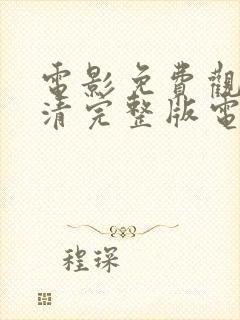 電影免費觀
清完整版電
程琛